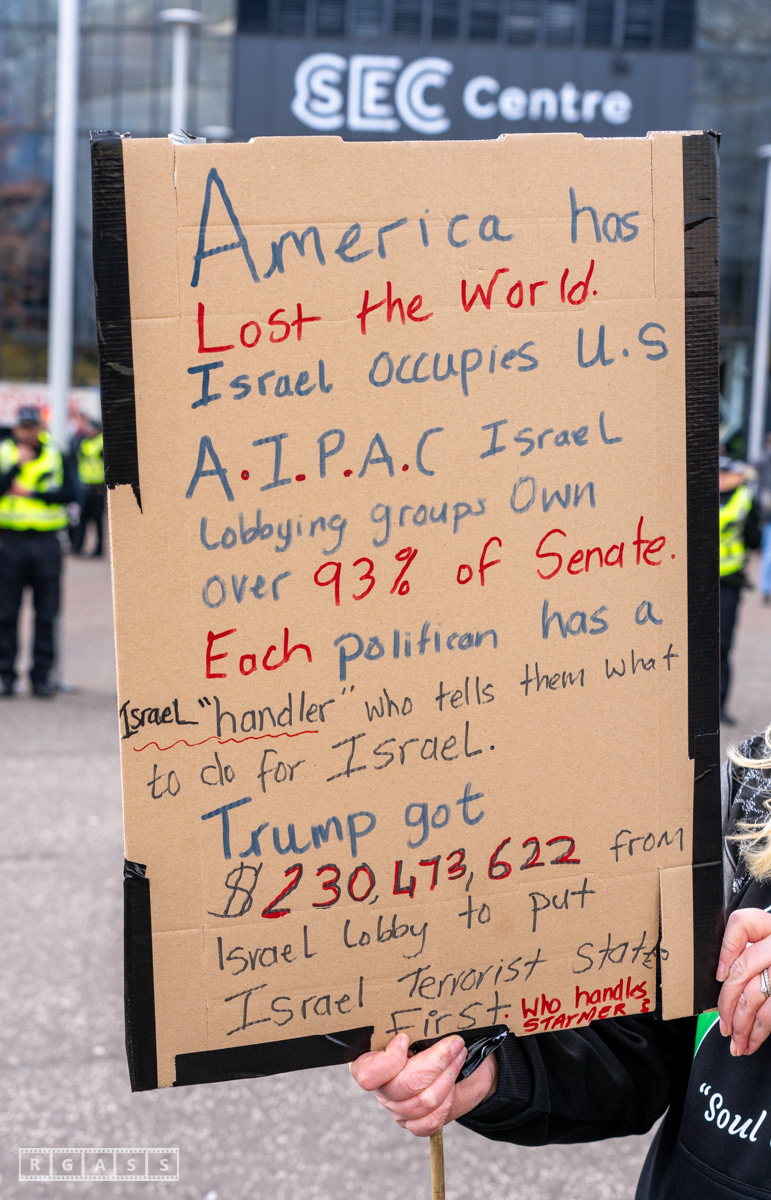 SEC Centre
America has
Lost the World.
Israel Occupies U.S
A.I.P.A.C Israel
Lobbying groups Own
over 93% of Senate.
Each politican has a
Israel "handler" who tells them what
to do for Israel.
Trump got
$230,473,622 from
Israel Lobby to put
Israel Terrorist State
First. Who handles
STARMER?
"Soul
RGASS